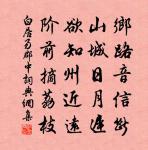 鄉路音信斷
山城日月遲
欲知州近遠
階前摘荔枝
白居易郡中詞典網集